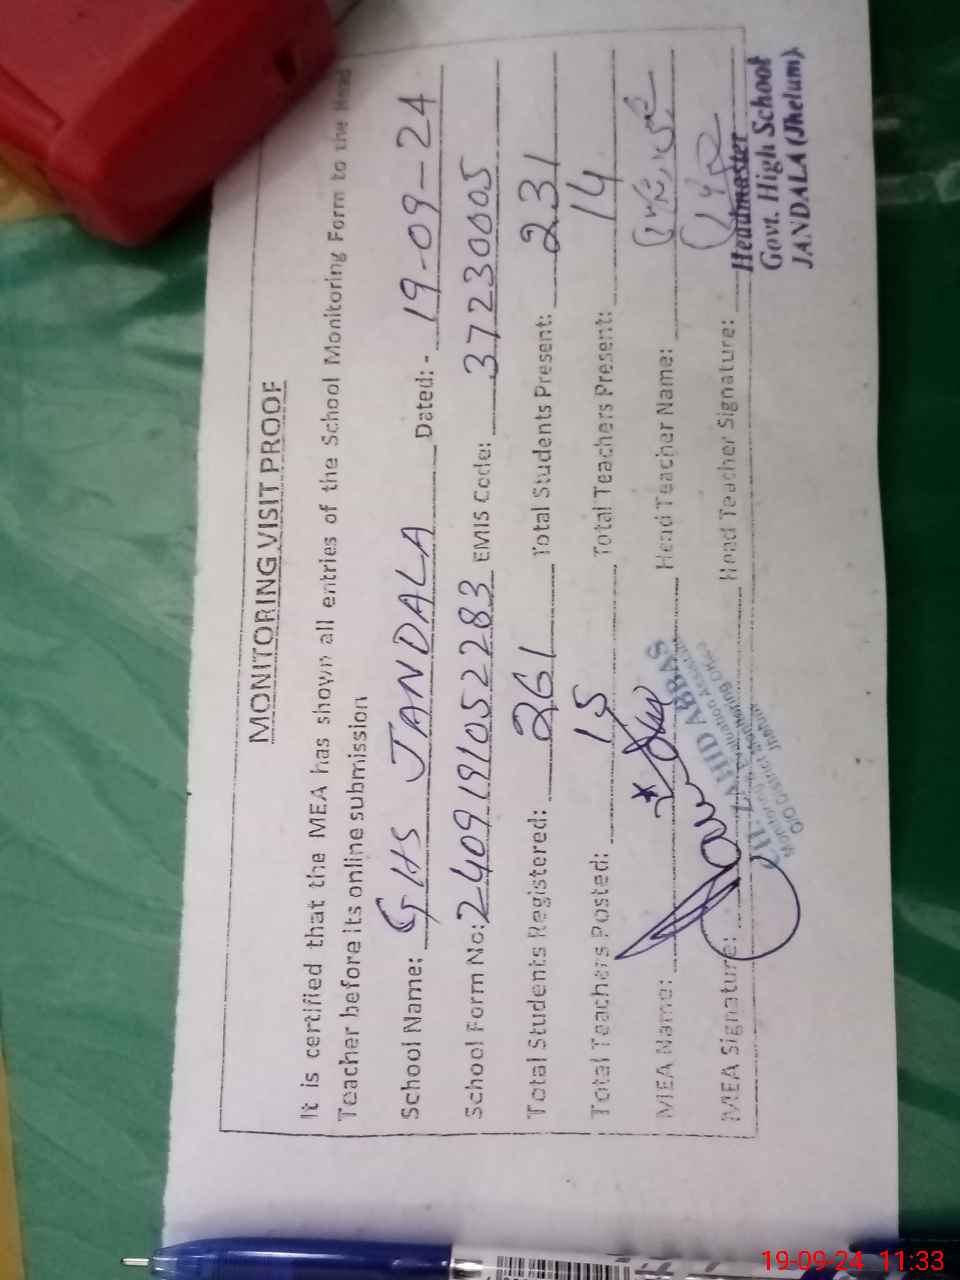 MONITORING VISIT PROOF
It is certified that the MEA has shown all entries of the School Monitoring Form to the Head
Teacher before its online submission
School Name: GHS JANDALA Dated: - 19-09-24
School Form No: 2409191052283 EMIS Code: 37230005
Total Students Registered: 261 Total Students Present: 231
Total Teachers Posted: 15 Total Teachers Present: 14
MEA Name: Head Teacher Name:
MEA Signature: Head Teacher Signature:
ZAHID ABBAS
Monitoring & Evaluation Assistant
O/O District Monitoring Officer
Jhelum
Headmaster
Govt. High School
JANDALA (Jhelum)
19-09-24 11:33